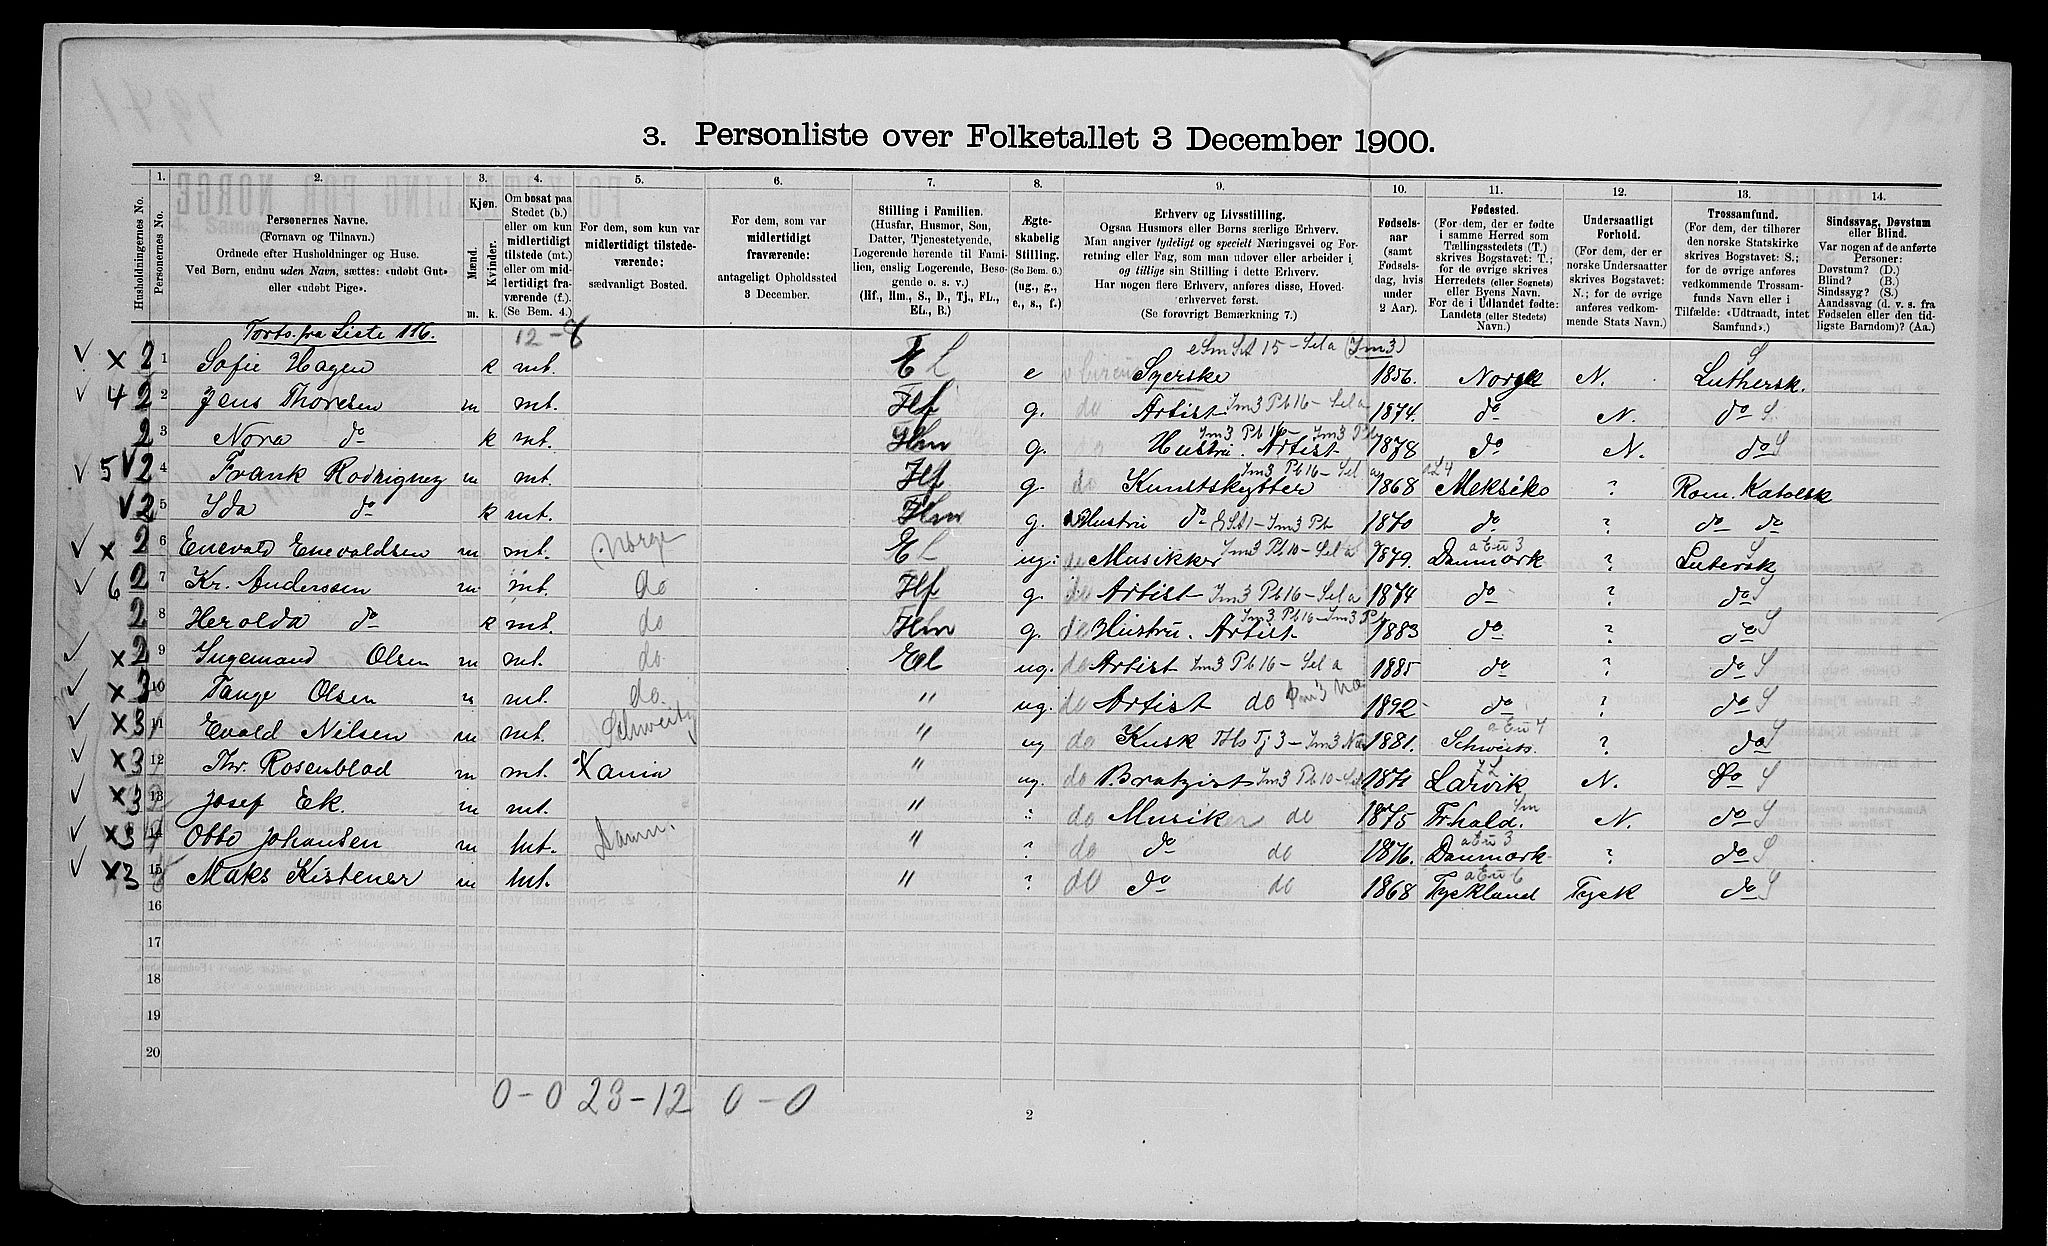 3. Personliste over Folketallet 3 December 1900.
1. 2. 3. 4. 5. 6. 7. 8. 9. 10. 11. 12. 13. 14.
Husholdningernes No.
Personernes No.
Personernes Navne.
(Fornavn og Tilnavn.)
Ordnede efter Husholdninger og Huse.
Ved Børn, endnu uden Navn, sættes: «udøbt Gut»
eller «udøbt Pige».
Kjøn.
Mænd. Kvinder.
m. k.
Om bosat paa
Stedet (b.)
eller om kun
midlertidigt
tilstede (mt.)
eller om mid-
lertidigt fra-
værende (f.).
(Se Bem. 4.)
For dem, som kun var
midlertidigt tilstede-
værende:
sædvanligt Bosted.
For dem, som var
midlertidigt
fraværende:
antageligt Opholdssted
3 December.
Stilling i Familien.
(Husfar, Husmor, Søn,
Datter, Tjenestetyende,
Logerende hørende til Fami-
lien, enslig Logerende, Besø-
gende o. s. v.)
(Hf., Hm., S., D., Tj., FL.,
EL., B.)
Ægte-
skabelig
Stilling.
(Se Bem. 6.)
(ug., g.,
e., s., f.)
Erhverv og Livsstilling.
Ogsaa Husmors eller Børns særlige Erhverv.
Man angiver tydeligt og specielt Næringsvei og For-
retning eller Fag, som man udøver eller arbeider i,
og tillige sin Stilling i dette Erhverv.
Har nogen flere Erhverv, anføres disse, Hoved-
erhvervet først.
(Se forøvrigt Bemærkning 7.)
Fødsels-
aar
(samt
Fødsels-
dag, hvis
under
2 Aar).
Fødested.
(For dem, der er fødte
i samme Herred som
Tællingsstedets (T.)
skrives Bogstavet: T.;
for de øvrige skrives
Herredets (eller Sognets)
eller Byens Navn.
For de i Udlandet fødte:
Landets (eller Stedets)
Navn.)
Undersaatligt
Forhold.
(For dem, der er
norske Undersaatter
skrives Bogstavet:
N.; for de øvrige
anføres vedkom-
mende Stats Navn.)
Trossamfund.
(For dem, der tilhører
den norske Statskirke
skrives Bogstavet: S.;
for de øvrige anføres
vedkommende Trossam-
funds Navn eller i
Tilfælde: «Udtraadt, intet
Samfund».)
Sindssvag, Døvstum
eller Blind.
Var nogen af de anførte
Personer:
Døvstum? (D.)
Blind? (B.)
Sindssyg? (S.)
Aandssvag (d. v. s. fra
Fødselen eller den tid-
ligste Barndom)? (Aa.)
Forts. fra Liste 116. 12-8
eSmSt 15 - Sela (Im3) S
✓ x 2 1 Sofie Hagen k mt. EL e Syerske 1856. Norge N. Luthersk.
✓ 4 2 2 Jens Thoresen m mt. Hf g. do Artist Im3 Pb16 - Sela 1874. do N. do S.
2 3 Nora do k mt. Hm g. Hustru. Artist Im3 Pb16 - Im3 Pb 1878 do N. do S
✓ 5 ✓ 2 4 Frank Rodriguez m mt. Hf g. do Kunstskytter Im3 Pb16 - Sela 1868 Meksiko ? Rom. Katolsk
✓ 2 5 Ida do k mt. Hm g. Hustru do 1870 do ? do do
✓ x 2 6 Enevald Enevaldsen m mt. Norge EL ug. do Musikker Im3 Pb10 - Sela 1879. Danmark aEu3 ? Lutersk S
✓ 6 2 7 Kr. Anderssen m mt. do Hf g. do Artist Im3 Pb16 - Sela 1874 do ? do S
2 8 Herolda do k mt. do Hm g. do Hustru. Artist Im3 Pb16 - Im3 Pb 1883 do ? do S
✓ x 2 9 Ingemand Olsen m mt. do EL ug. do Artist Im3 Pb16 - Sela 1885 do ? do S
✓ x 3 10 Tange Olsen m mt. do " ug. do Artist do Im3 1892 do ? do S
✓ x 3 11 Evald Nilsen m mt. Schweitz " ug do Kusk Tj3 - Im3 1881. Schweits. aEu4 ? do S
✓ x 3 12 Thr. Rosenblad m mt. Xania " ug. do Im3 Pb10 - Sela 1871 Larvik N. do S
✓ x 3 13 Josef Ek. m mt. " do Musiker do 1875 Frhald. Sm N. do S
✓ x 3 14 Otto Johansen m mt. Danm. " ? do do do 1876. Danmark aEu3 ? do S
✓ x 3 15 Maks Kistener m mt. " ? do do do 1868 Tyskland aEu6 Tysk do S
16
17
18
19
20
0-0 23-12 0-0
2